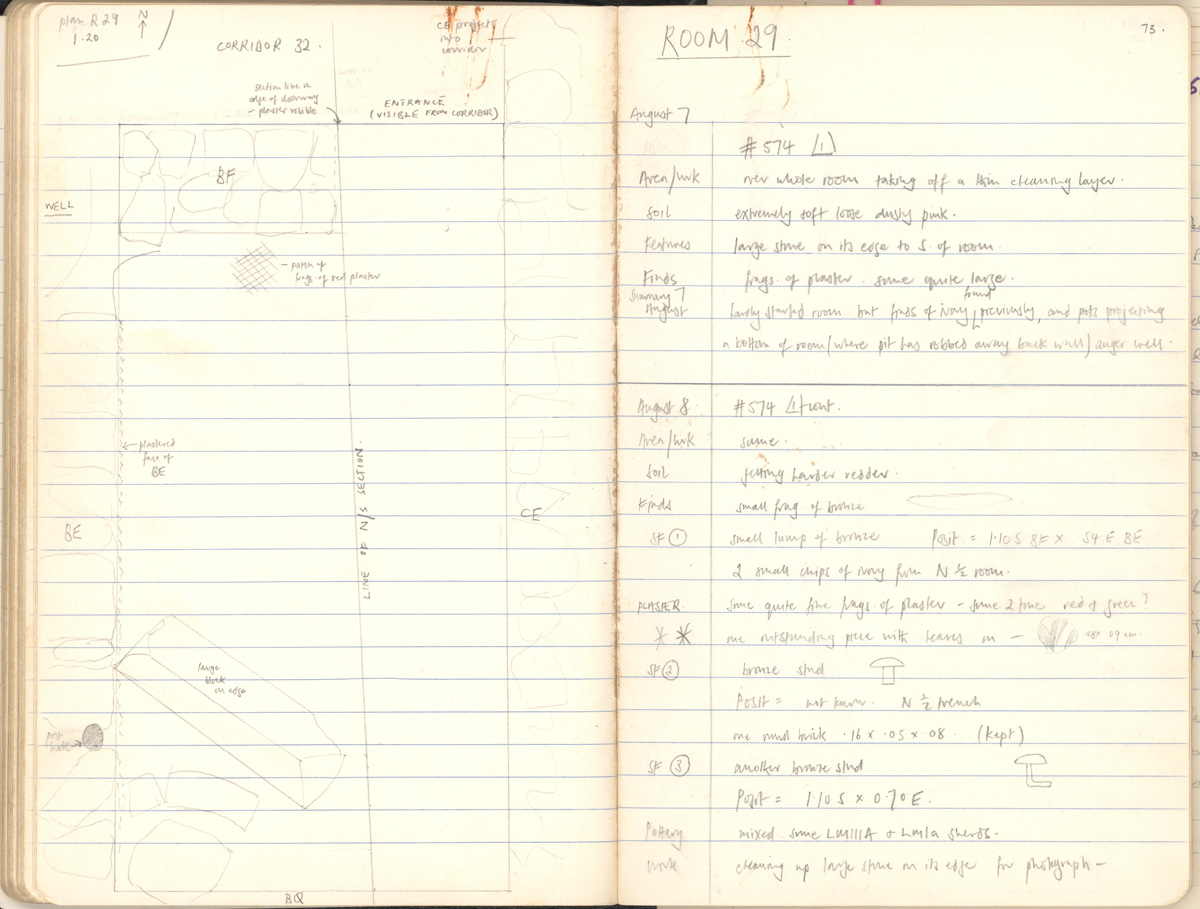 plan R 29
1·20
N
CORRIDOR 32.
CE projects
into
corridor
section line on
edge of doorway
– plaster visible
ENTRANCE
(VISIBLE FROM CORRIDOR)
BF
WELL
– patch of
frags of red plaster
← plastered
face of
BE
LINE OF N/S SECTION.
BE
CE
large
block
on edge.
post
hole →
BQ
ROOM 29
73.
August 7
#574 1
Area/wk over whole room taking off a thin cleaning layer.
Soil extremely soft loose dusty pink.
Features large stone on its edge to S. of room.
Finds frags. of plaster. some quite large.
Summary 7
August hardly started room but finds of ivory found previously, and pots projecting
bottom of room (where pit has robbed away back wall) auger well.
August 8 #574 1 cont.
Area/wk same.
Soil getting harder redder.
Finds small frag of bronze
SF 1 small lump of bronze Posit = 1.10 S BF × .54 E BE
2 small chips of ivory from N ½ room.
PLASTER. some quite fine frags of plaster – some 2 tone red & green?
* * one outstanding piece with leaves on – .08 × .09 cm.
SF 2 bronze stud
Posit = not known. N ½ trench
one mud brick .16 × .05 × .08. (Kept)
SF 3 another bronze stud
Posit = 1.10 S × 0.70 E.
Pottery mixed some LMIIIA & LMIa sherds.
work cleaning up large stone on its edge for photograph –